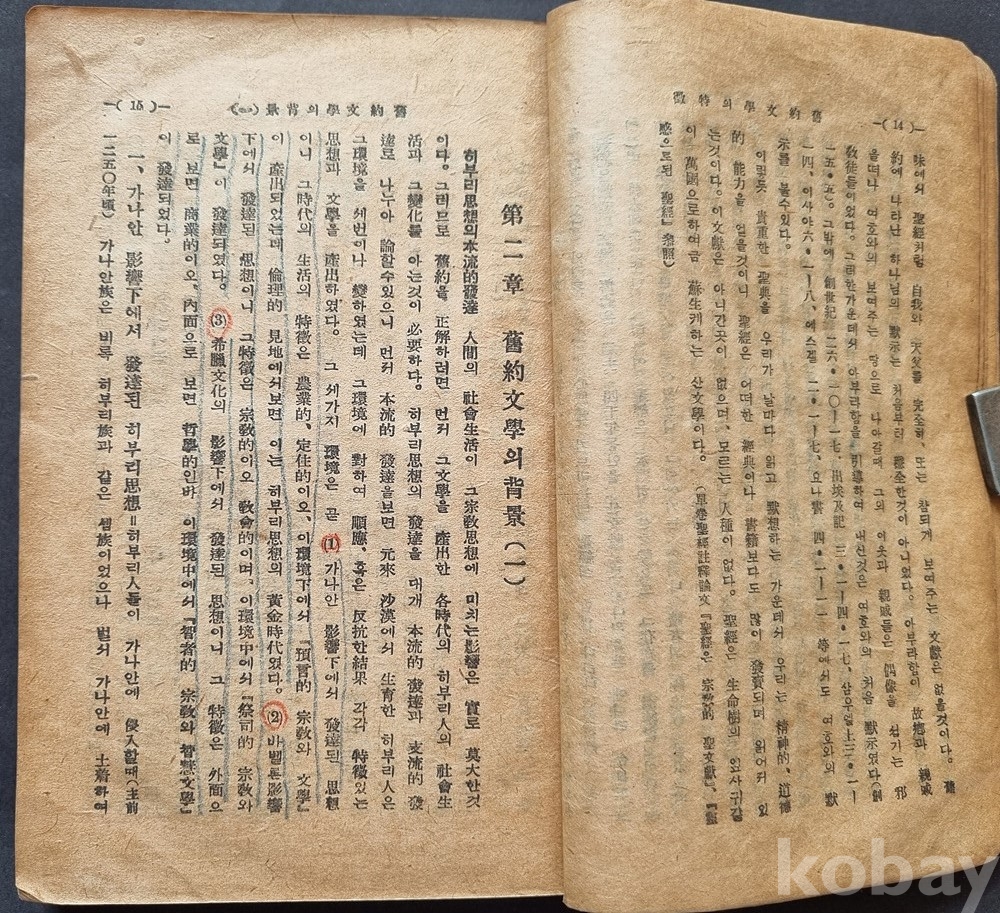 —( 14 )—
舊約文學의 特徵
味에서 聖經처럼 自我와 天父를 完全히, 또는 참되게 보여주는 文獻은 없을것이다。 舊
約에 나타난 하나님의 默示는 처음부터 完全한것이 아니었다。 아부라함이 故鄕과 親戚
을떠나 여호와의 보여주는 땅으로 나아갈때 그의 이웃과 親戚들은 偶像을 섬기는 邪
敎徒들이었다。 그러한가운데서 아부라함을 引導하여 내신것은 여호와의 처음 默示였다(創
一五・ 그밖에 創世紀 二六・ 一〇ー一七、 出埃及記 三・一ー四・一七、 삼우엘上三・一ー
一四、 이사야六・一ー八、 에스겔 요나書 四・一ー一一 等에서도 여호와의 默
示를 볼수있다。
이렇듯 貴重한 聖典을 우리가 날마다 읽고 默想하는 가운데서 우리는 精神的、 道德
的 能力을 얻을것이니 聖經은 어떠한 經典이나 書籍보다도 많이 發賣되며 읽어커 있
는것이다。 이文獻은 아니간곳이 없으며、 모르는 人種이 없다。 聖經은 生命樹의 잎사귀같
이 萬國으로하여금 蘇生케하는 산文學이다。 (單卷聖經註釋論文『聖經은 宗敎的 聖文獻』、『靈
感으로된 聖經』參照)
—( 15 )—
舊約文學의背景(一)
第二章 舊約文學의背景(一)
히부리思想의本流的發達 人間의 社會生活이 그宗敎思想에 미치는影響은 實로 莫大한것
이다。 그러므로 舊約을 正解하려면 먼커 그文學을 產出한 各時代의 히부리人의 社會生
活과 그變化를 아는것이 必要하다。 히부리思想의 發達을 대개 本流的發達과 支流的 發
達로 나누아 論할수있으니 먼커 本流的 發達을보면 元來 沙漠에서 生育한 히부리人은
그環境을 세번이나 變하였는데 그環境에 對하여 順應、혹은 反抗한結果 各각 特徵있는
思想과 文學을 產出하였다。 그 세가지 環境은 곧 (1) 가나안 影響下에서 發達된 思想
이니 그時代의 生活의 特徵은 農業的、定住的이오、이環境下에서『預言的 宗敎와 文學』
이 產出되었는데 倫理的 見地에서보면 이는 히부리思想의 黃金時代였다。 (2) 바벨론影響
下에서 發達된 思想이니 그特徵은 宗敎的이오 敎會的이며、이環境中에서『祭司的 宗敎와
文學』이 發達되였다。 (3) 希臘文化의 影響下에서 發達된 思想이니 그 特徵은 外面으
로 보면 商業的이오、內面으로 보면 哲學的인바 이環境中에서『智者的 宗敎와 智慧文學』
이 發達되었다。
一、가나안 影響下에서 發達된 히부리思想=히부리人들이 가나안에 侵入할때(主前
一二五〇年頃) 가나안族은 비록 히부리族과 같은 셈族이었으나 벌서 가나안에 土着하여
kobay